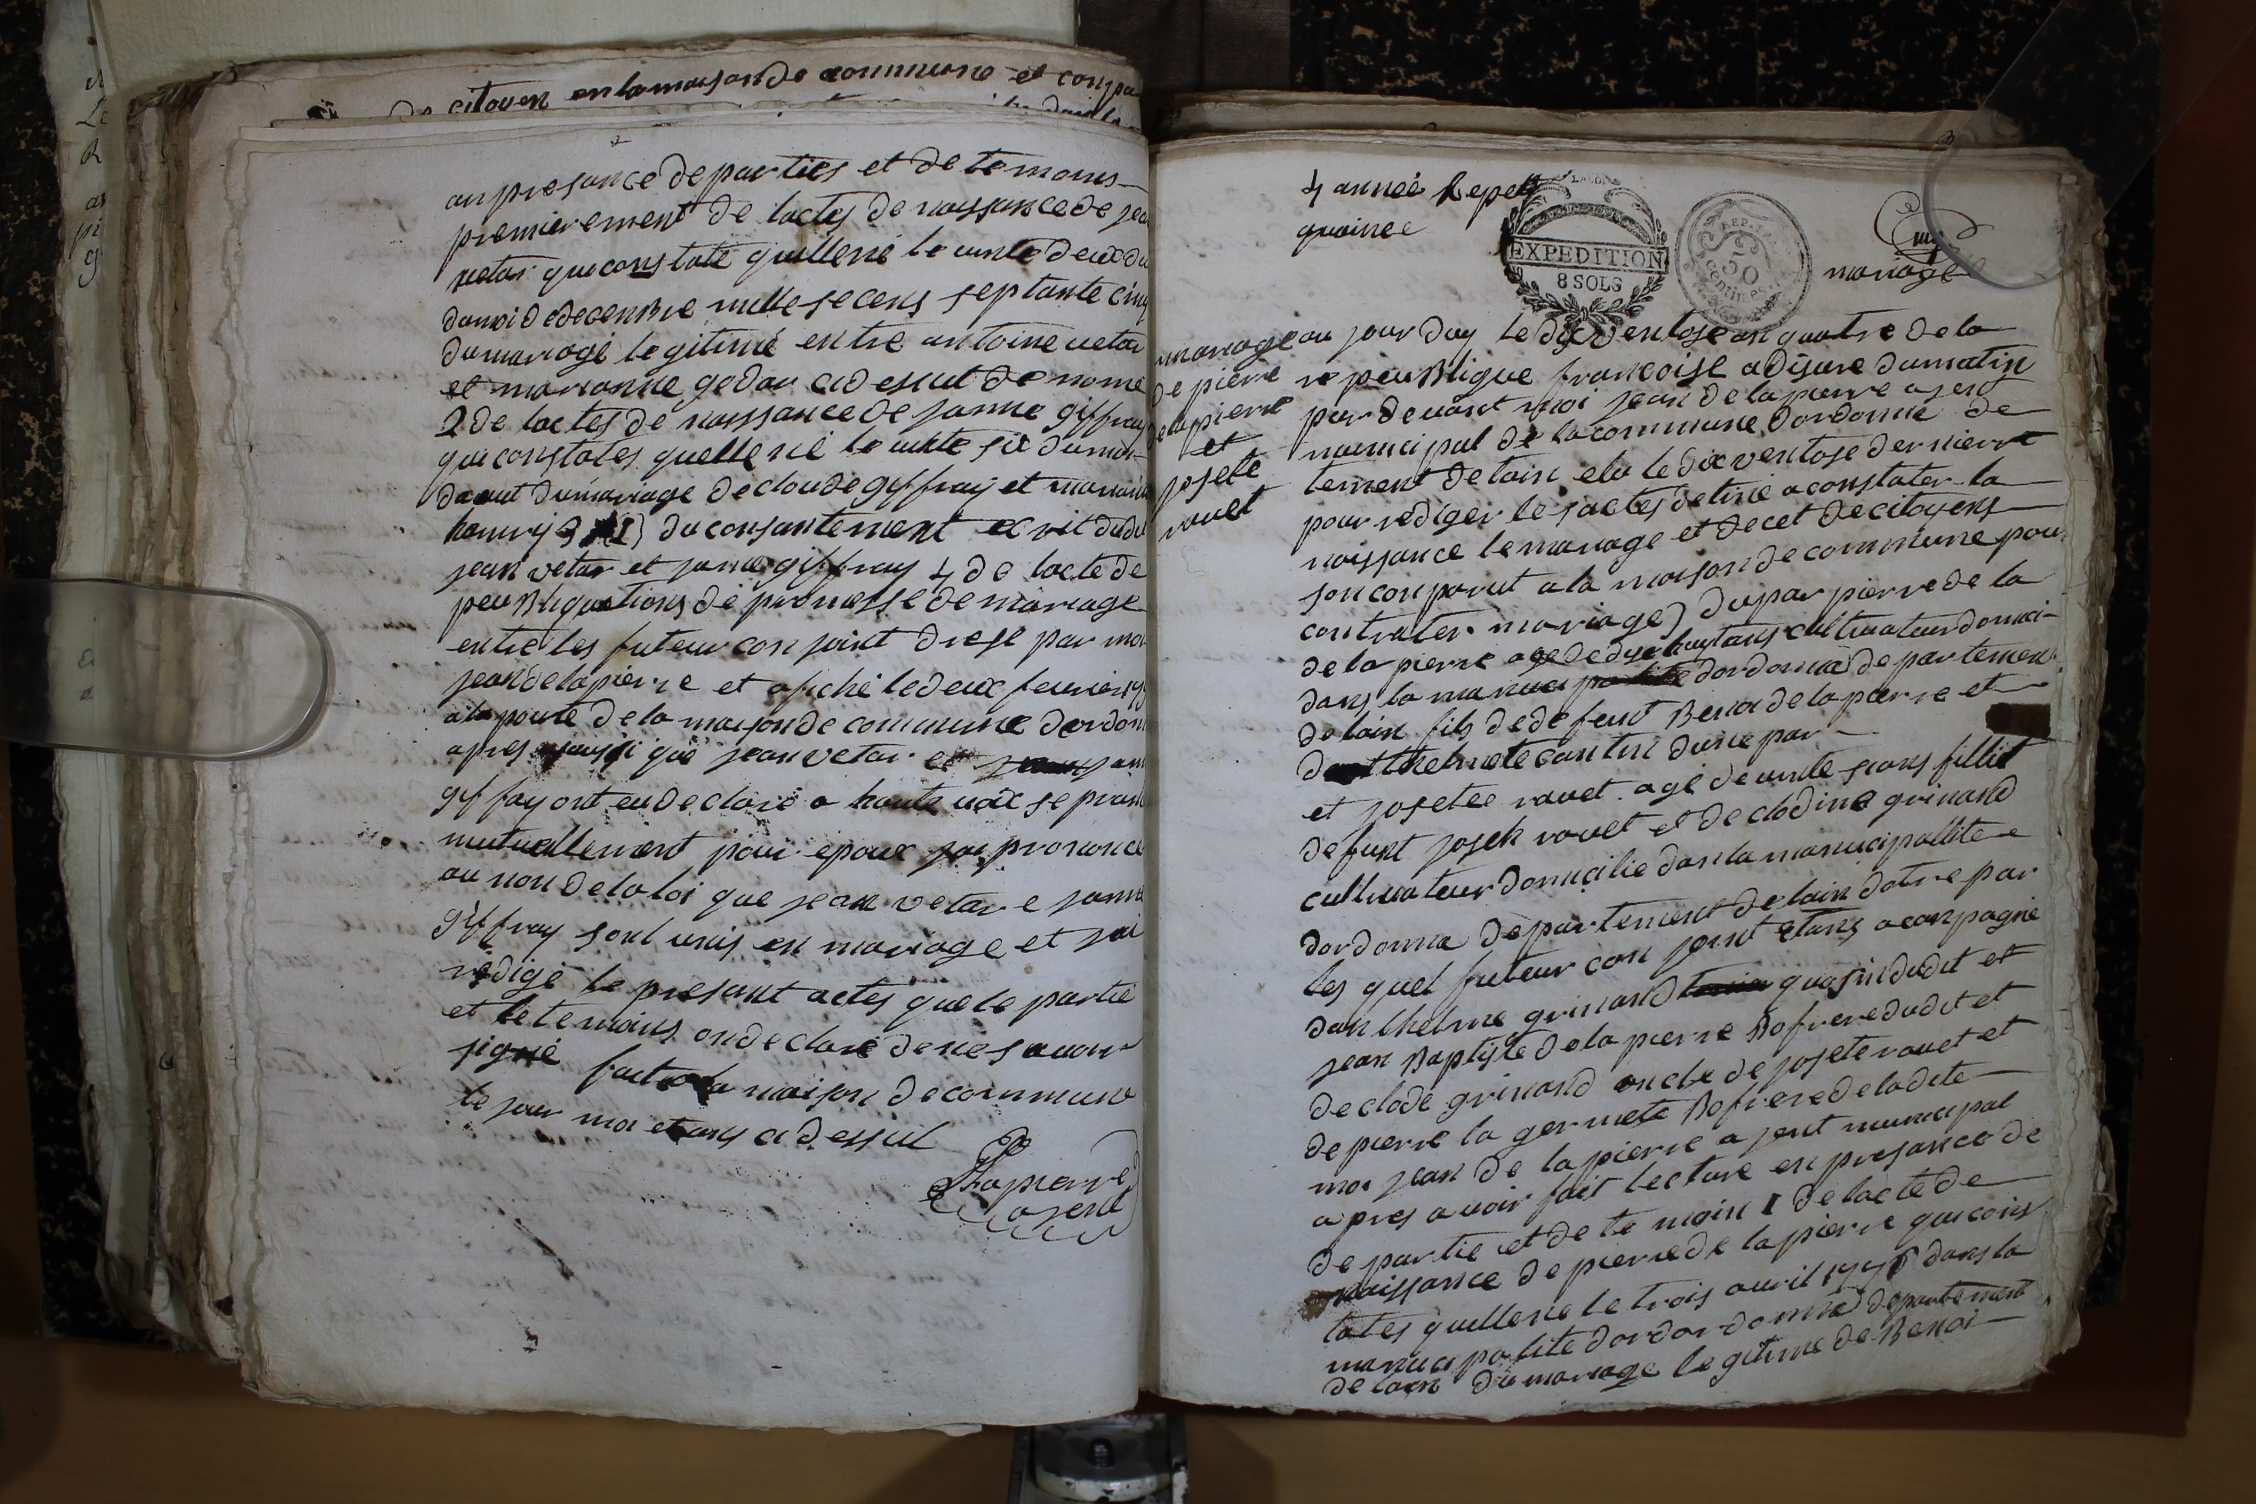 de citoyen en la maison de commune et conpa
an presance de parties et de temoins
premierement de lactes de naissance de jea
vetar qui constate quillené le vinte deux du
du moi de decenBre mille secens septante cinq
du mariage legitime entre antoine vetar
et marianne godar ci dessut de nome
2 de lactes de naissance de janne giffray
qui constates quelle né le vinte six du moi
daout du mariage de cloude giffray et mariane
henrij 3 du consantement ecrit dudit
jean vetar et janne giffray 4 de lacte de
peuBliquations de promesse de mariage
entre les futeur conjoint drese par moi
jean de lapierre et afiché le deux fevrier 179
a la porte de la maison de commune dordon
apres ausi que jean vetar et jan
giffray ont eu declaré a haute voix se prand
mutuellement pour epoux jai prononce
au non de la loi que jean vetar e janne
giffray sont unis en mariage et jai
redigé le presant actes que le partie
et le temoins on declaré de ne savoir
signé fait a la maison de commune
le jour moi et ans ci dessut
Lapierre
agent
4 année Repeu
quaine
EXPEDITION
8 SOLS
REP. FRA.
50
centimes
mariage
mariage
de pierre
delapierre
et
josete
rovet
au jourduy le dix ventose an quatre de la
repeuBlique francoise a dix ure du matin
par devant moi jean de lapierre ajen
municipal de la commune dordonna de
tement de lain elu le dix ventose dernierre
pour rediger les actes detiné a constater la
naissance le mariage et decet de citoyens
son conparut a la maison de commune pour
contrater mariage du par pierre de la
de la pierre agé de dyx huytans cultivateur domici
dans la manicipalité dordonna departement
de lain fils de defeunt Benoi de lapierre et
danthelmete cantin dune par
et josetee rovet agé de vinte sians fillie
defunt joseh rovet et de clodine grinand
cultivateur domicilie dan la manicipallite
dordonna departement de lain dotre par
les quel futeur conjoint etans aconpagné
danthelme grinand quosin dudit et
jean Baptiste de la pierre Bofrere dudit et
de clode grinand oncle de josete rovet et
de pierre la germete Bofrere de ladite
moi jean de la pierre ajent municipal
apres avoir fait lecture en presance de
de partie et de te moin 1 de lacte de
naissance de pierre de la pierre qui cons
tates quillené le trois avril 1778 dans la
manicipalité dordordonna departement
de lain du mariage legitime de Benoi